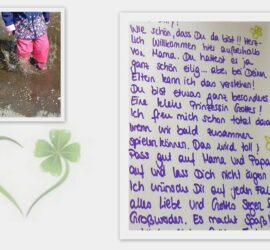 Wie schön, dass Du da bist!! Herz-
lich Willkommen hier außerhalb
von Mama. Du hattest es ja
ganz schön eilig... aber bei Deinen
Eltern kann ich das verstehen!
Du bist etwas ganz besonderes
Eine kleine Prinzessin Gottes!
Ich freu mich schon total darauf
wenn wir bald zusammen
spielen können. Das wird toll!
Pass gut auf Mama und Papa
auf und lass Dich nicht ärgern
Ich wünsche Dir auf jeden Fall
alles Liebe und Gottes Segen
Großwerden. Es macht Spaß!